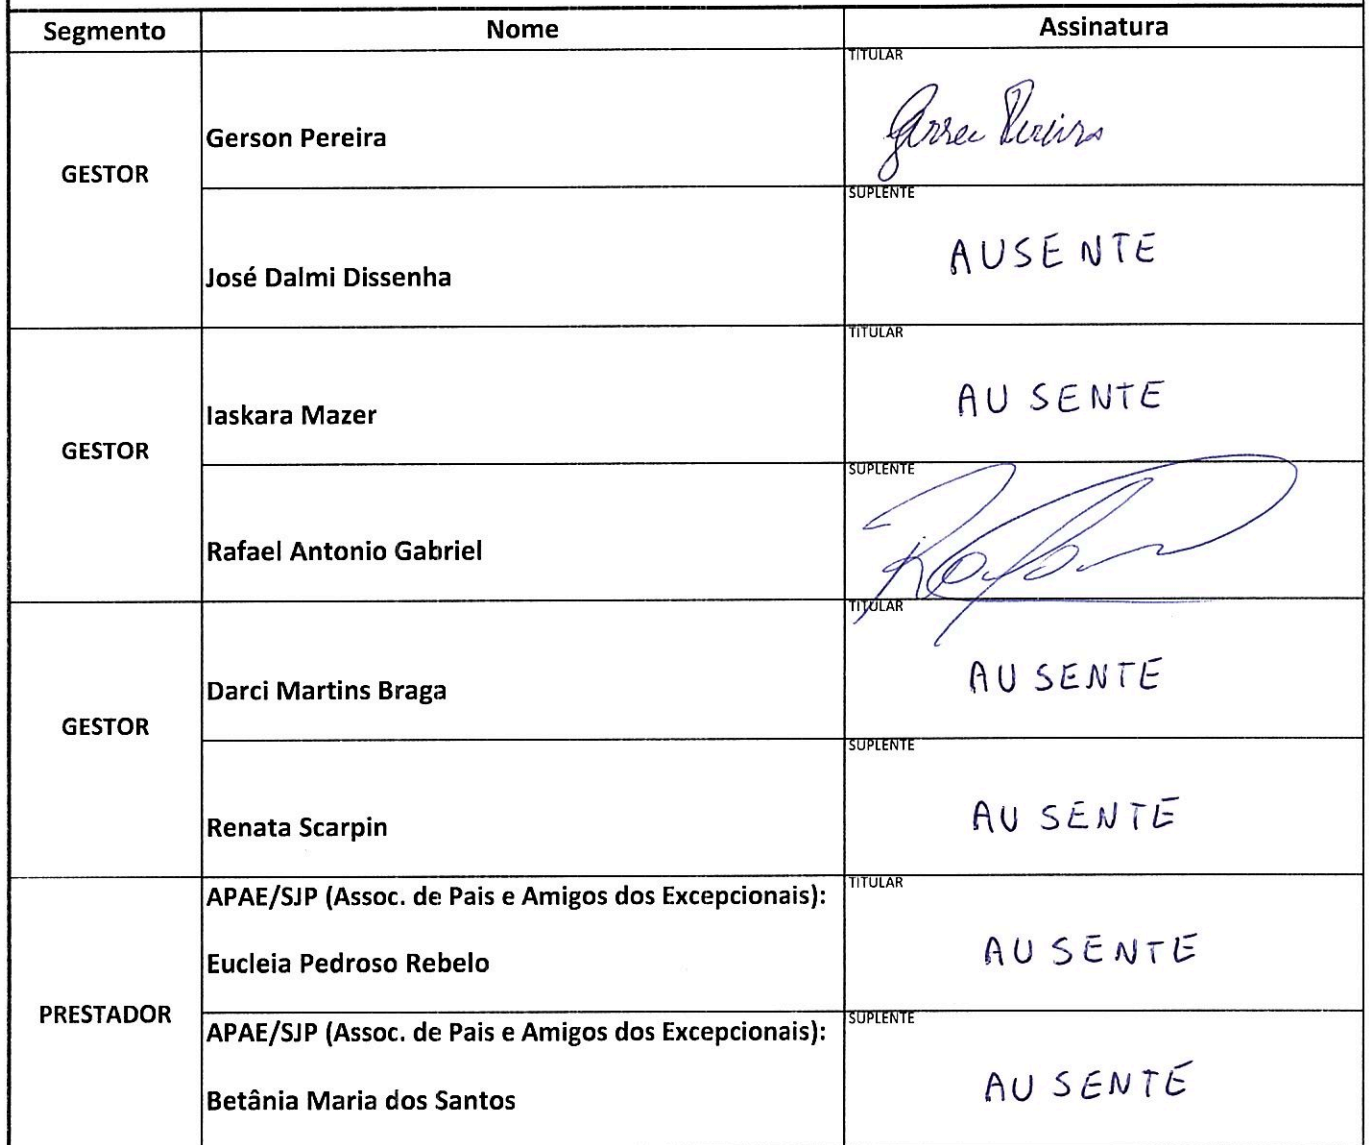 Segmento Nome Assinatura
GESTOR
Gerson Pereira
TITULAR
José Dalmi Dissenha
SUPLENTE
AUSENTE
GESTOR
Iaskara Mazer
TITULAR
AUSENTE
Rafael Antonio Gabriel
SUPLENTE
GESTOR
Darci Martins Braga
TITULAR
AUSENTE
Renata Scarpin
SUPLENTE
AUSENTE
PRESTADOR
APAE/SJP (Assoc. de Pais e Amigos dos Excepcionais):
Eucleia Pedroso Rebelo
TITULAR
AUSENTE
APAE/SJP (Assoc. de Pais e Amigos dos Excepcionais):
Betânia Maria dos Santos
SUPLENTE
AUSENTE